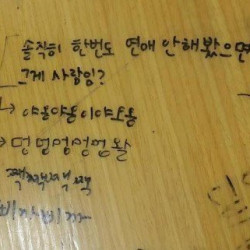 솔직히 한번도 연애 안해봤으면
그게 사람임?
→ 야옹야옹이야오옹
→ 멍멍멍멍멍왈
짹짹짹짹
삐까삐까